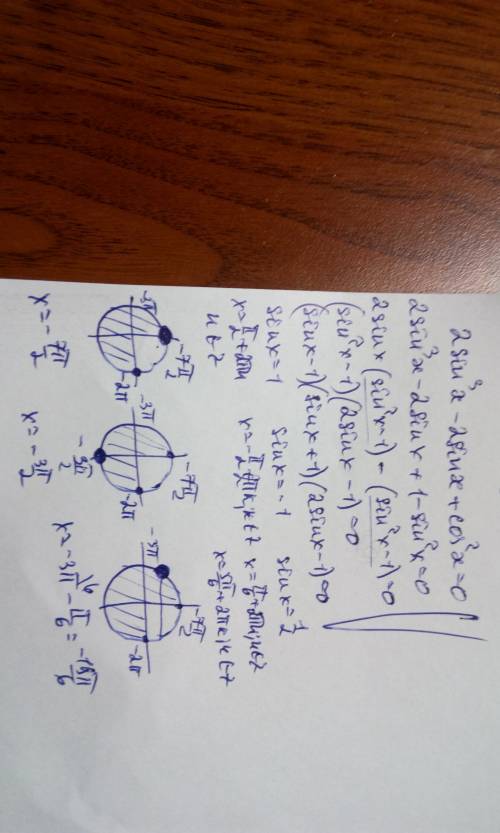 2sin³x - 2sinx + cos²x = 0
2sin³x - 2sinx + 1 - sin²x = 0
2sinx (sin²x - 1) - (sin²x - 1) = 0
(sin²x - 1)(2sinx - 1) = 0
(sinx - 1)(sinx + 1)(2sinx - 1) = 0
sinx = 1 sinx = -1 sinx = 1/2
x = π/2 + 2πn x = -π/2 + 2πk, k∈Z x = π/6 + 2πm, m∈Z
n∈Z x = 5π/6 + 2πe, e∈Z
-7π/2 -7π/2 -7π/2
-3π -2π -3π -2π -3π -2π
-5π/2
x = -7π/2 x = -5π/2 x = -3π - π/6 = -19π/6